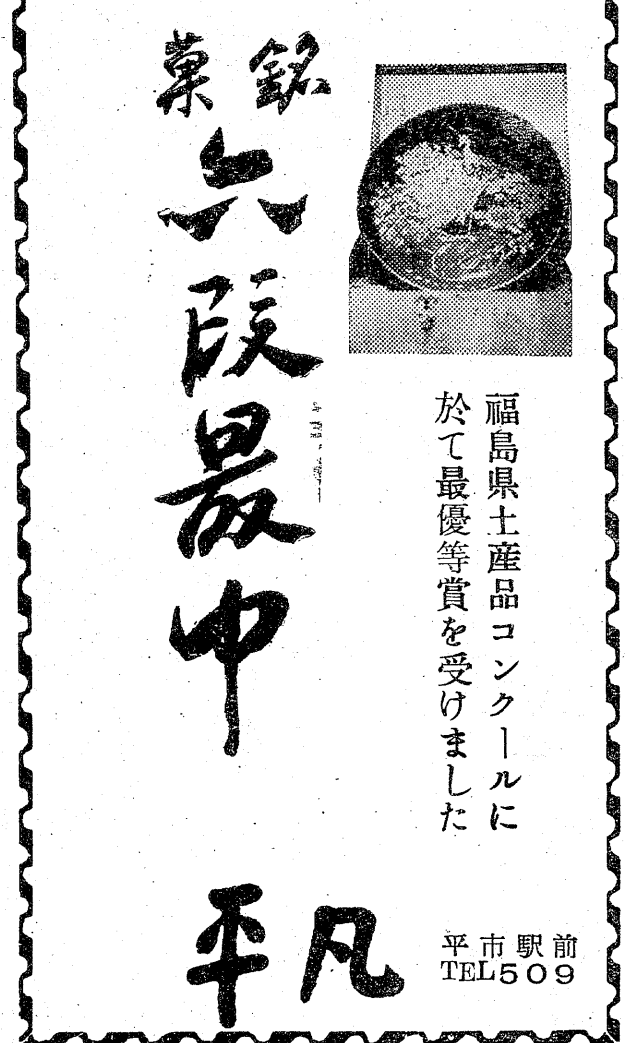 福島県土産品コンクールに
於て最優等賞を受けました
銘菓
六段最中
平凡
平市駅前
TEL509